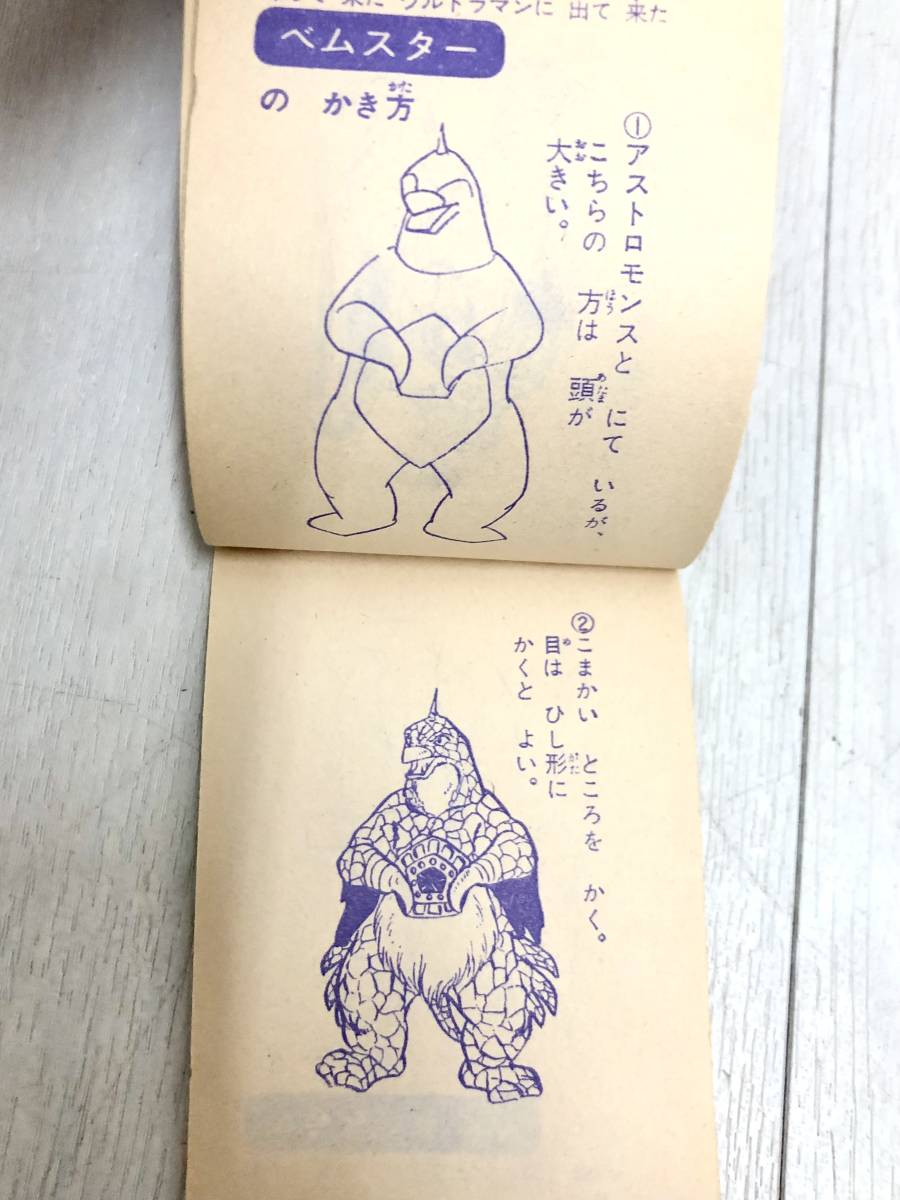 来た ウルトラマンに 出て 来た
ベムスター
の かき方
①アストロモンスと にて いるが、
こちらの 方は 頭が
大きい。
②こまかい ところを かく。
目は ひし形に
かくと よい。